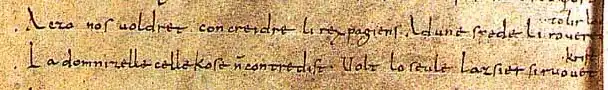 tolir lo
Aczo nos voldret concreidre li rex pagiens. Ad une spede li roveret
krist
La domnizelle celle kose n̄ contredist. Volt lo seule lazsier si ruovet